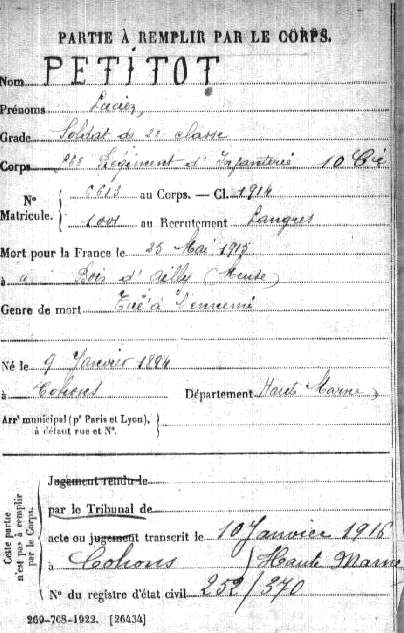 PARTIE À REMPLIR PAR LE CORPS.
Nom PETITOT
Prénoms Lucien,
Grade Soldat de 2e classe
Corps Régiment d'Infanterie 10 Cie
No Matricule. 6613 au Corps. — Cl. 1914
1001 au Recrutement Langres
Mort pour la France le 25 Mai 1915
à Bois d'Ailly (Meuse)
Genre de mort Tué à l'ennemi
Né le 9 Janvier 1894
à Cohons Département Haute Marne
Arrt municipal (pr Paris et Lyon), à défaut rue et No.
Cette partie n'est pas à remplir par le Corps.
Jugement rendu le
par le Tribunal de
acte ou jugement transcrit le 10 Janvier 1916
à Cohons (Haute Marne
No du registre d'état civil 252/370
269-708-1922. [26434]